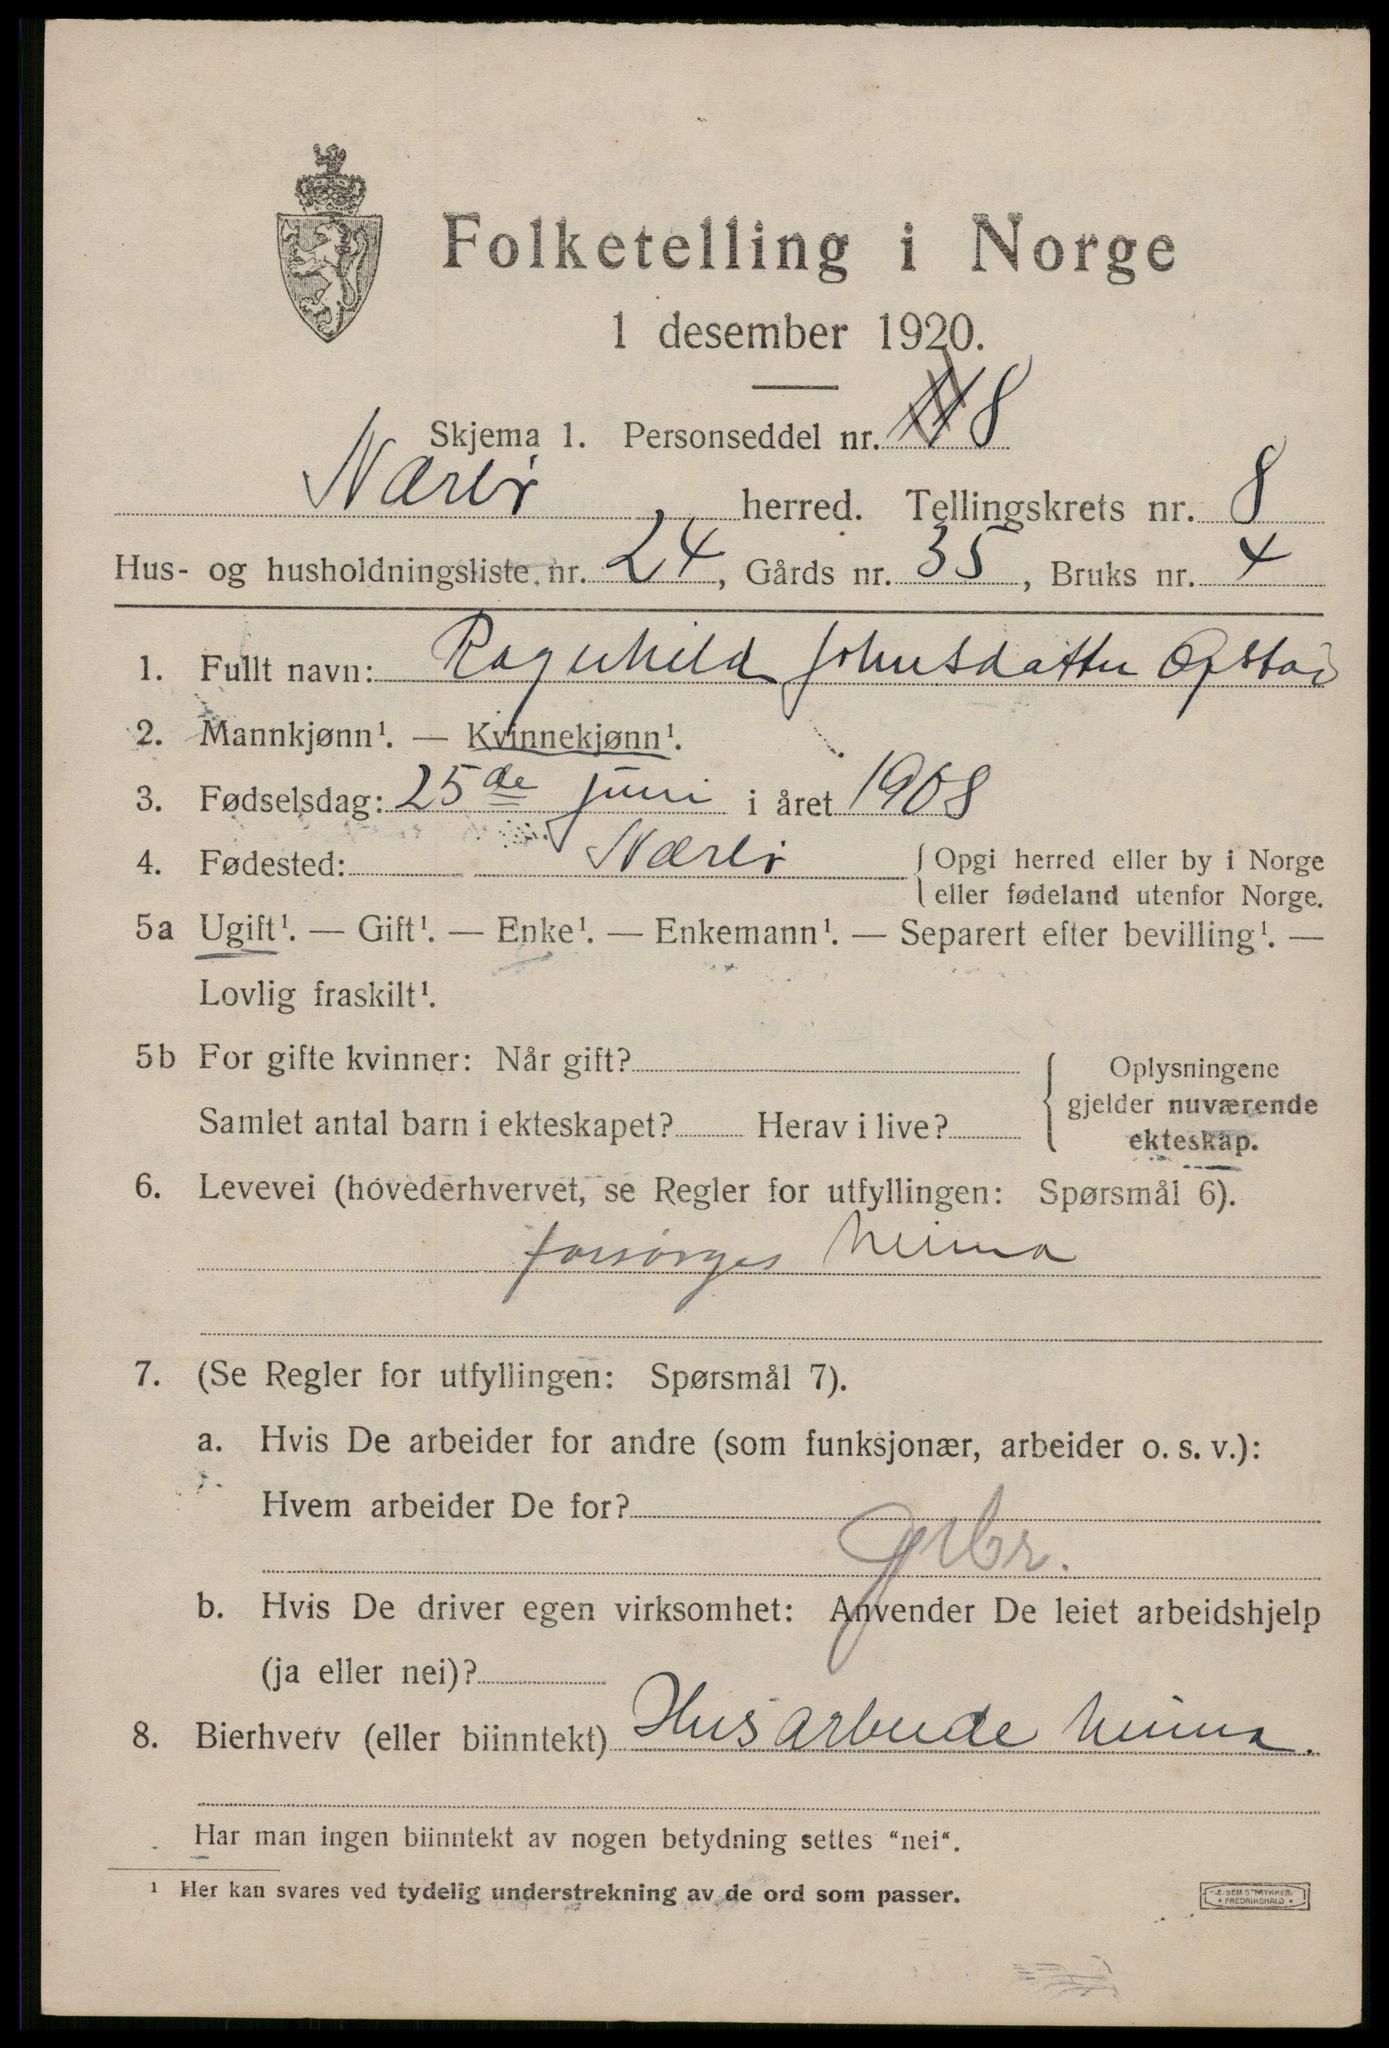 Folketelling i Norge
1 desember 1920.
Skjema 1. Personseddel nr. 8
Nærbø herred. Tellingskrets nr. 8
Hus- og husholdningsliste nr. 24, Gårds nr. 35, Bruks nr. 4
1. Fullt navn: Ragnhild Johnsdatter Opstad
2. Mannkjønn¹. — Kvinnekjønn¹.
3. Fødselsdag: 25de juni i året 1908
4. Fødested: Nærbø { Opgi herred eller by i Norge
eller fødeland utenfor Norge.
5a Ugift¹. — Gift¹. — Enke¹. — Enkemann¹. — Separert efter bevilling¹. —
Lovlig fraskilt¹.
5b For gifte kvinner: Når gift?
Samlet antal barn i ekteskapet? Herav i live?
{ Oplysningene
gjelder nuværende
ekteskap.
6. Levevei (hovederhvervet, se Regler for utfyllingen: Spørsmål 6).
forsørges heima
7. (Se Regler for utfyllingen: Spørsmål 7).
a. Hvis De arbeider for andre (som funksjonær, arbeider o. s. v.):
Hvem arbeider De for?
b. Hvis De driver egen virksomhet: Anvender De leiet arbeidshjelp
(ja eller nei)?
8. Bierhverv (eller biinntekt) Husarbeide heima.
Har man ingen biinntekt av nogen betydning settes "nei".
¹ Her kan svares ved tydelig understrekning av de ord som passer.
E. SEM S TRYKKERI
* FREDRIKSHALD *